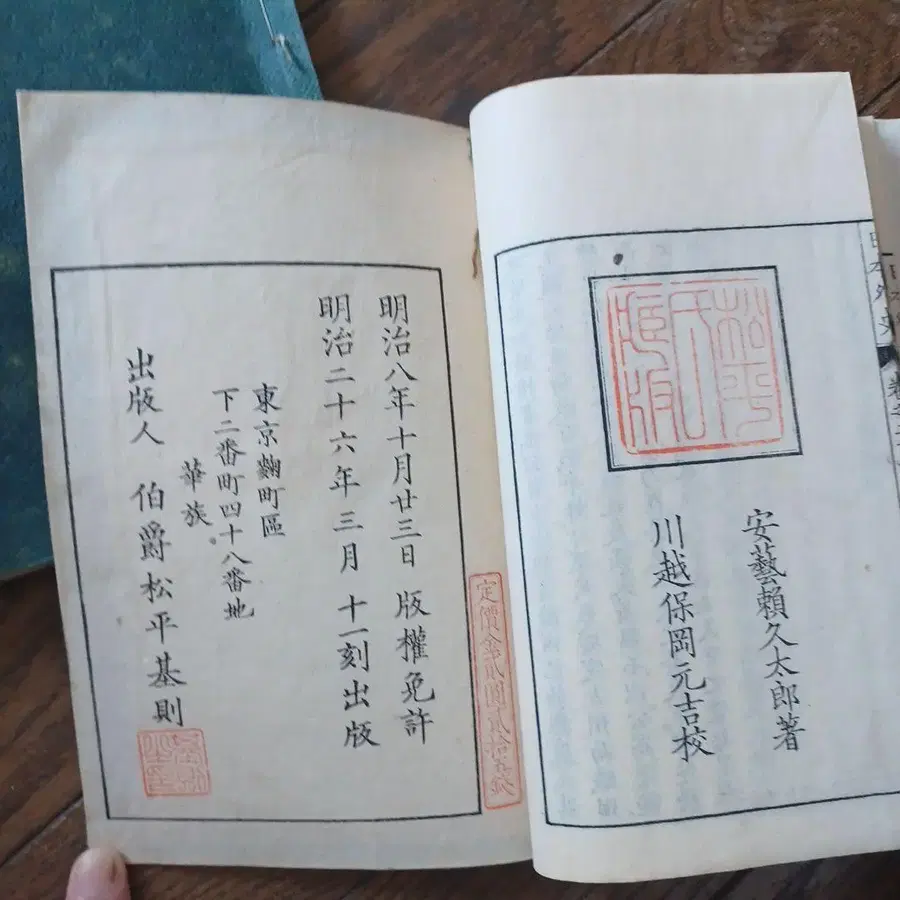 松平
氏
版
安藝賴久太郎著
川越保岡元吉校
日本外史
明治八年十月廿三日 版權免許
明治二十六年三月 十一刻出版
東京麴町區
下二番町四十八番地
華族
出版人 伯爵松平基則
定價金貳圓貳拾五錢